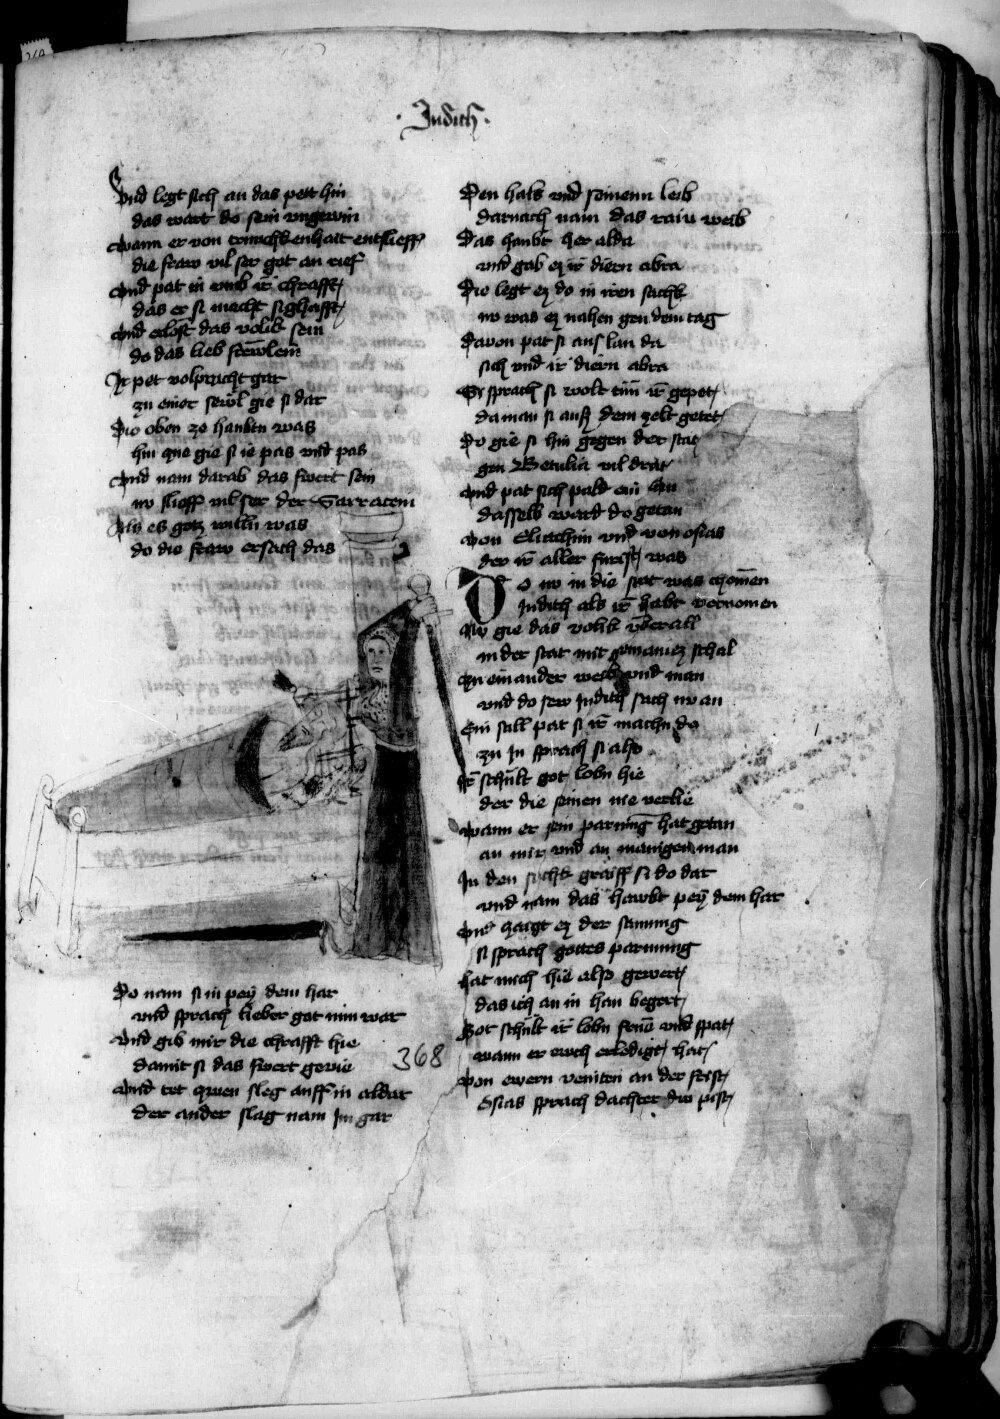 · Judith ·
Vnd legt sich an das pett hin
das wart do sein vngewin
Wann er von trunchkenhait entslieff
die fraw vil ser got an rief
Vnd pat in vmb ir chrafft
das er si macht sighafft
Vnd erlöst das volkh sein
do das lieb frewlein
Ir pet volpracht gar
zu einer sewl gie si dar
Die oben ze haubtn was
hin zue gie si ie pas vnd pas
Vnd nam darab das swert sein
nv slieff vil ser der Sarracem
Als es gotz willn was
do die fraw ersach das
Do nam si in pey dem har
vnd sprach lieber got nim war
Vnd gib mir die chrafft hie
damit si das swert gevie
Vnd tet zwen sleg auff in aldar
der ander slag nam im gar
368
Den hals vnd seinenn leib
darnach nam das rain weib
Das haubt her alda
vnd gab ez ir diern abra
Die legt ez do in iren sackh
nv was ez nahen gen dem tag
Davon pat si aus lan da
sich vnd ir diern abra
Si sprach si wolt tun ir gepet
da man si auß dem zelt getet
Do gie si hin gegen der stat
gen Betulia vil drat
Vnd pat sich pald ein lan
dasselb ward do getan
Von Eliachim vnd von osias
der ir aller furst was
Do nv in die stat was chomen
Judith als ir habt vernomen
Nv gie das volkh vberall
in der stat mit gemainez schal
Zu einander weib vnd man
vnd do frw Judith sach nv an
Ein still pat si ir machn do
zu in sprach si also
Ir schult got lobn hie
der die seinen nie verlie
Wann er sein parmung hat getan
an mir vnd an manigem man
In den sackh graiff si do dar
vnd nam das hawbt pey dem har
Vnd zaigt ez der samung
si sprach gottes parmung
hat mich hie also gewert
das ich an in han begert
Got schult ir lobn frue vnd spat
wann er ewch erledigt hat
Von ewern veinten an der frist
Osias sprach dachter dw pist